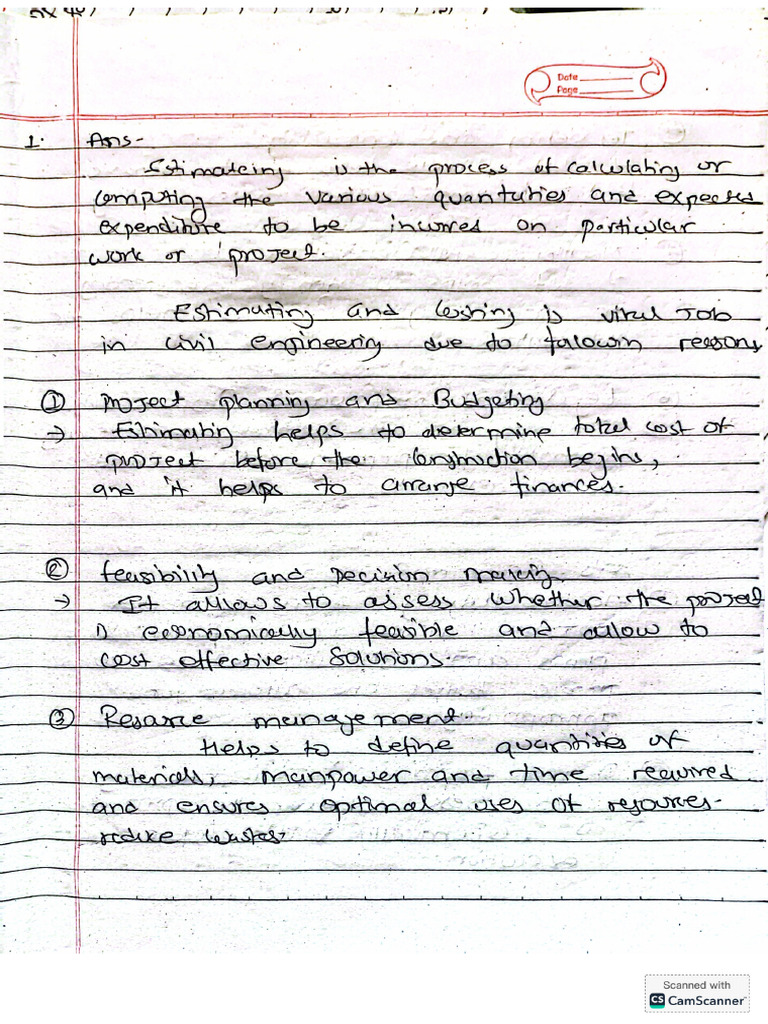 Date
Page
1. Ans-
Estimateing is the process of calculating or
computing the various quantities and expected
expenditure to be incurred on particular
work or project.
Estimating and costing is vital Job
in civil engineering due to falowin reasons
① Project planning and Budgeting
→ Estimating helps to determine total cost of
project before the construction begins,
and it helps to arrange finances.
② feasibility and Decision making
→ It allows to assess whether the project
is economically feasible and allow to
cost effective solutions.
③ Resarce management
Helps to define quantities of
materials, manpower and time required
and ensures optimal uses of resources.
reduce wastes.
Scanned with
CS CamScanner